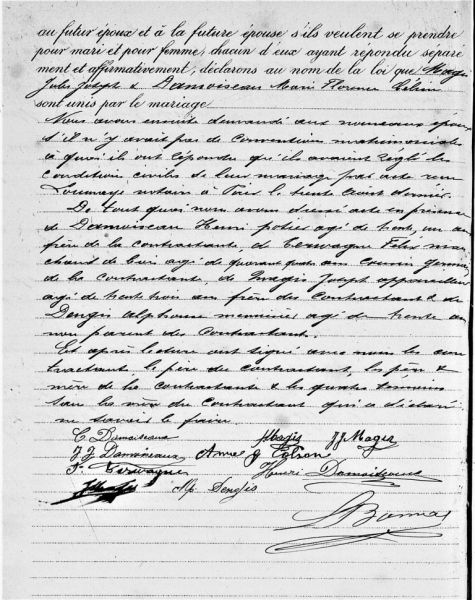 au futur époux et à la future épouse s'ils veulent se prendre
pour mari et pour femme, chacun d'eux ayant répondu séparé
ment et affirmativement, déclarons au nom de la loi que Magis
Jules Joseph & Damoiseau Marie Florence
sont unis par le mariage
Nous avons ensuite demandé aux nouveaux époux
s'il n'y avait pas de Conventions matrimoniales
à quoi ils ont répondu qu'ils avaient réglé les
conditions civiles de leur mariage par acte
notaire à le trente août dernier.
De tout quoi nous avons dressé acte en présence
de Damoiseau Henri potier agé de trente un ans
frère de la contractante, de Terwagne Félix mar
chand de bois agé de quarante quatre ans cousin germain
de la contractante, de Magis Joseph
agé de trente trois ans frère du Contractant & de
Dengis alphonse menuisier agé de trente ans
non parent des contractants.
Et après lecture ont signé avec nous les con
tractant le père du contractant, les père &
mère de la contractante & les quatre temoins
sauf la mère du Contractant qui a déclaré
ne savoir le faire.
C Damoiseau JMagis JJ Magis
J J Damoiseaux Anne J
F. Terwagne Henri Damoiseaux
JMagis Alp. Dengis